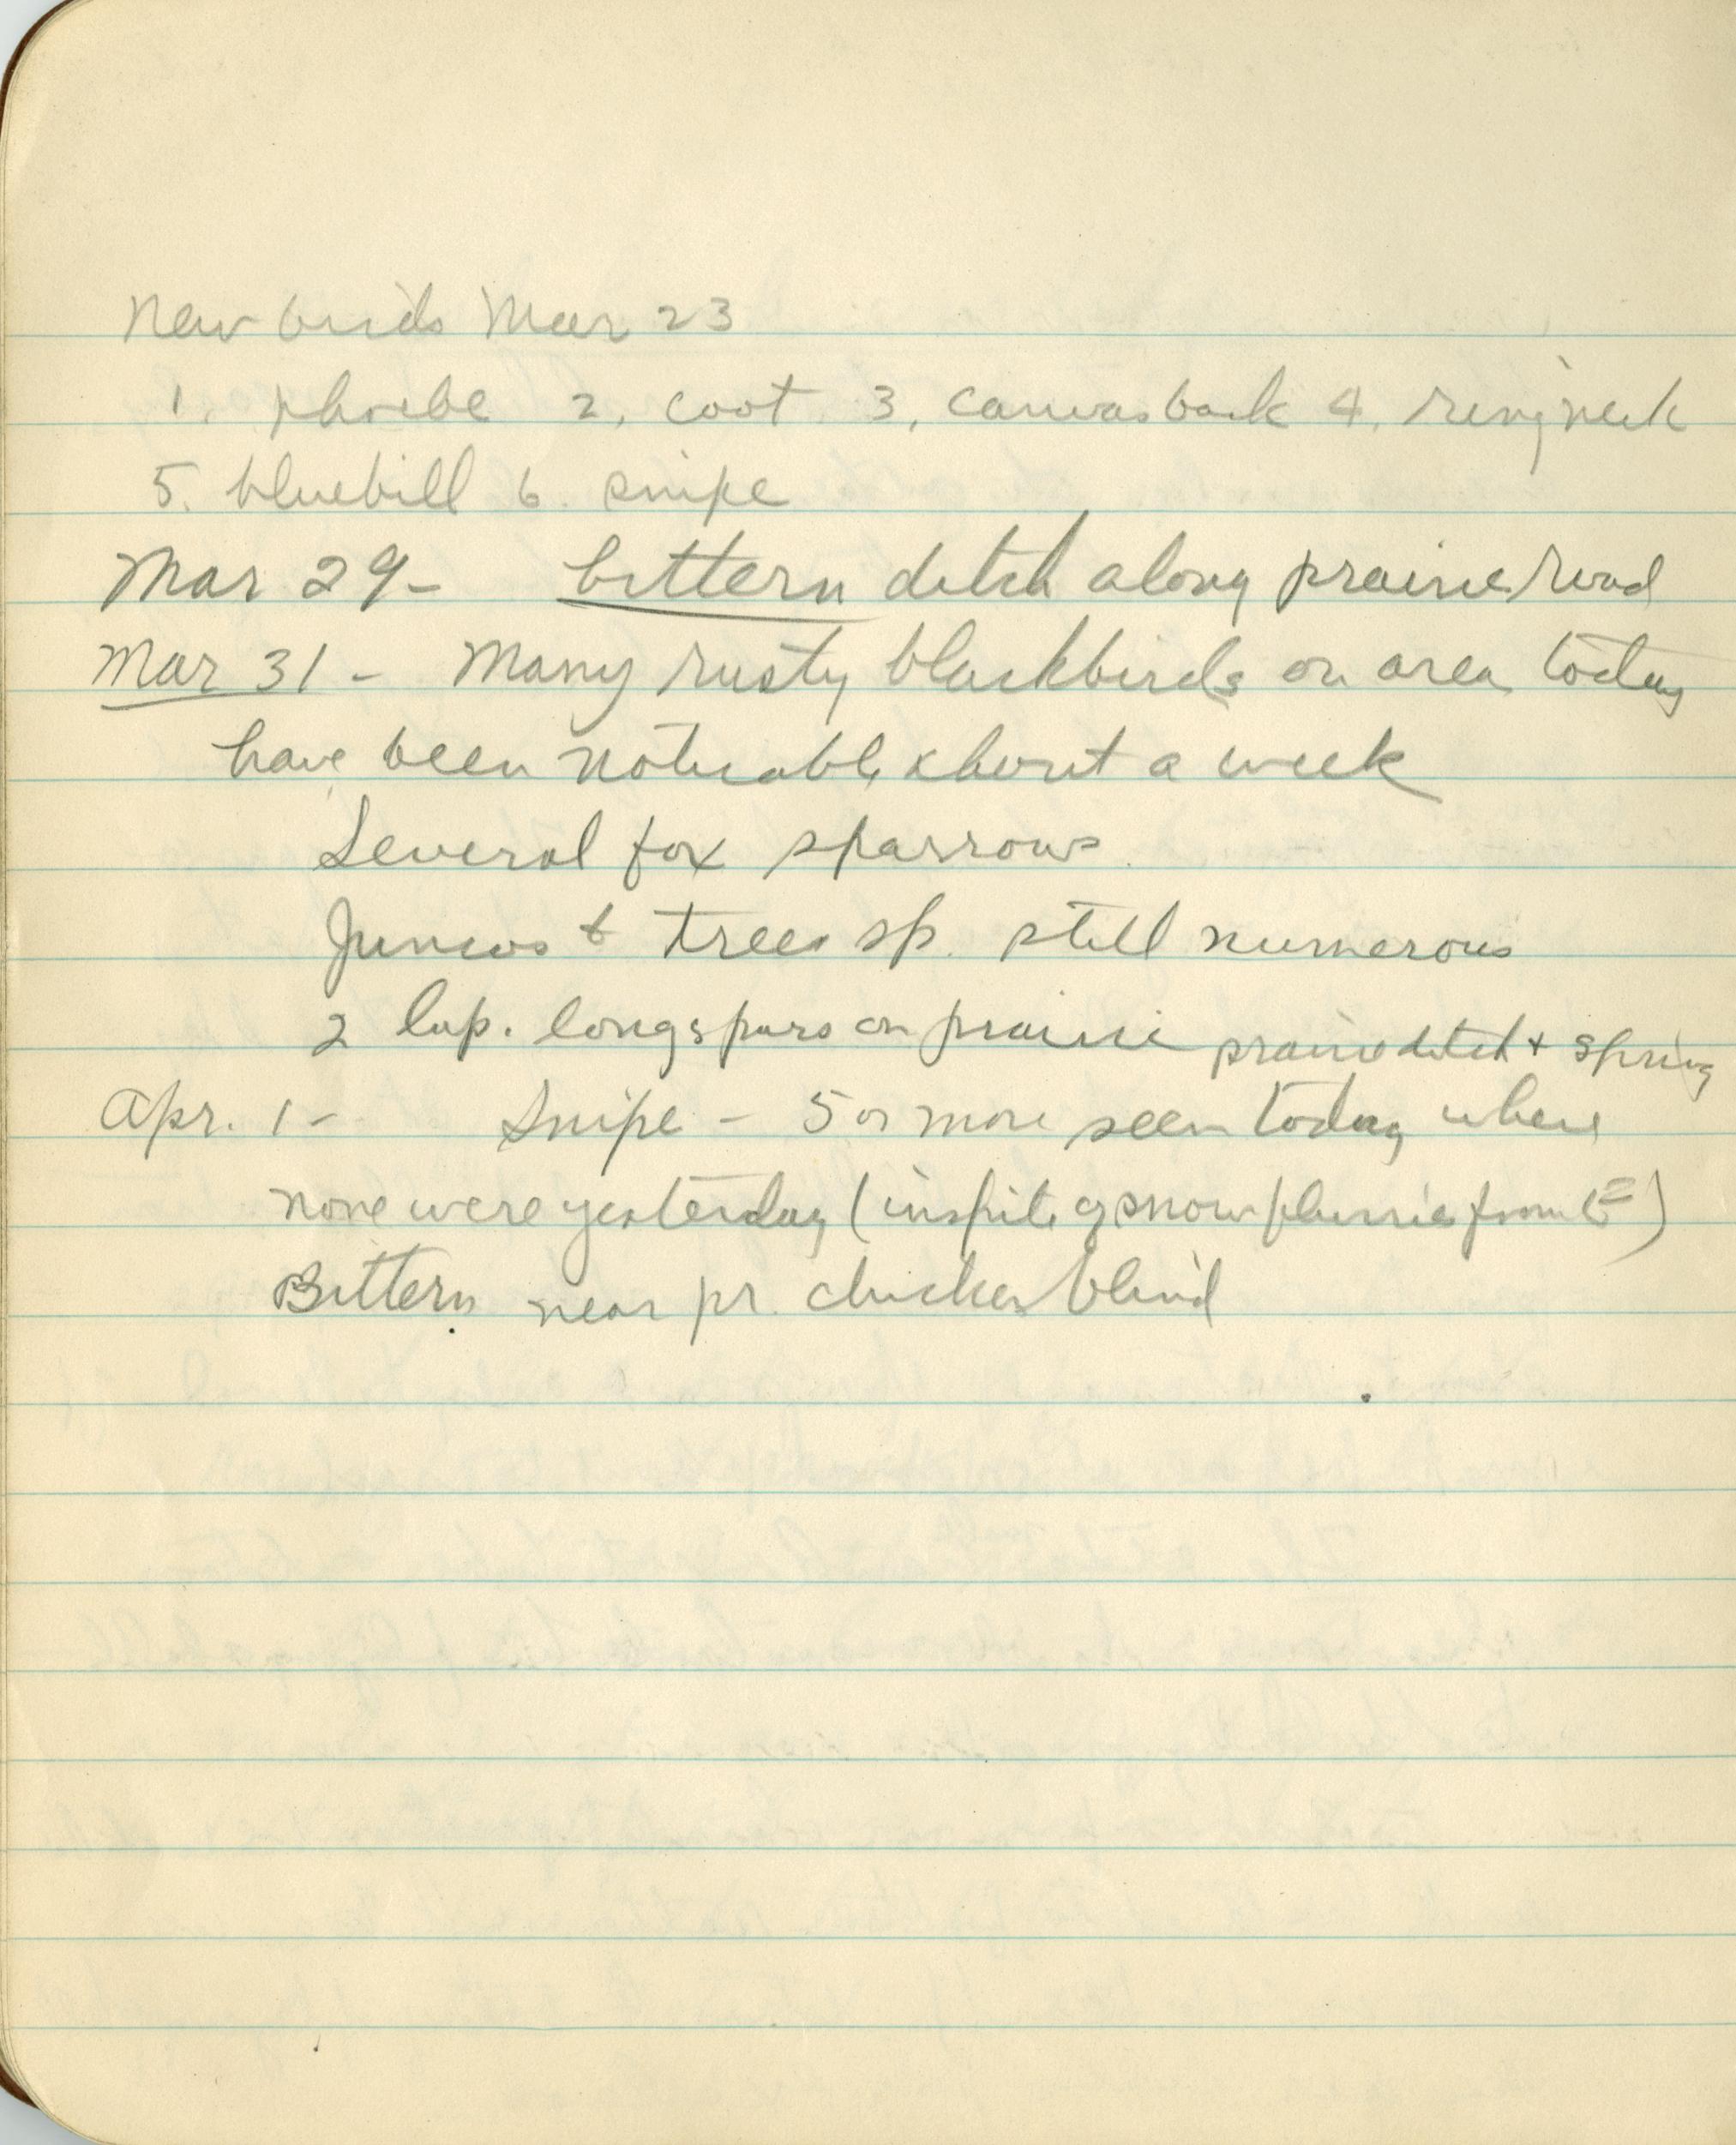 New birds Mar 23
1. phoebe 2. coot 3. canvasback 4. ringneck
5. bluebill 6. snipe
Mar 29- bittern ditch along prairie road
Mar 31 - Many rusty blackbirds on area today
have been noticable about a week
Several fox sparrows
Juncos & tree sp. still numerous
2 lap. longspurs on prairie
prairie ditch & spring
Apr. 1 - Snipe - 5 or more seen today where
none were yesterday (inspite of snow flurries from E)
Bittern near pr. chicken blind